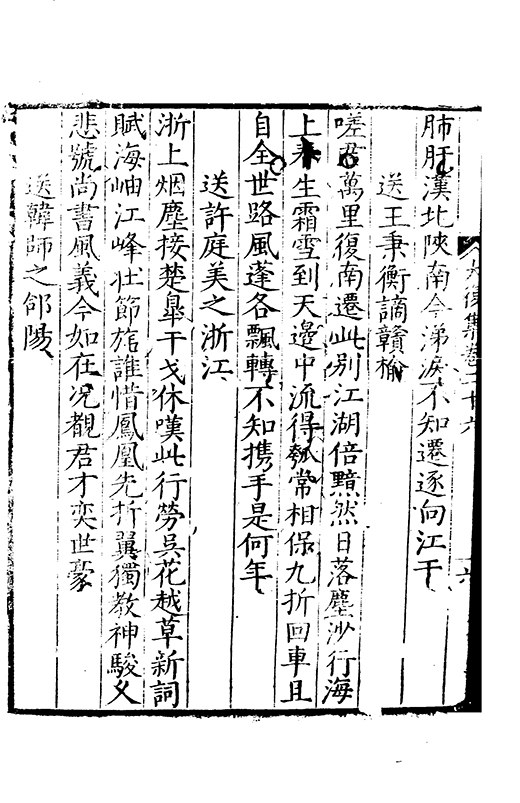 肺肝漢北陝南今涕淚不知遷逐向江干
送王秉衡謫贛榆
嗟君萬里復南遷此別江湖倍黯然日落塵沙行海
上春生霜雪到天邊中流得瓠常相保九折回車且
自全世路風蓬各飄轉不知携手是何年
送許庭美之浙江
浙上烟塵接楚臯干戈休嘆此行勞吳花越草新詞
賦海岫江峰壯節旄誰惜鳳凰先折翼獨教神駿乆
悲號尚書風義今如在况覩君才奕世豪
送韓師之郃陽